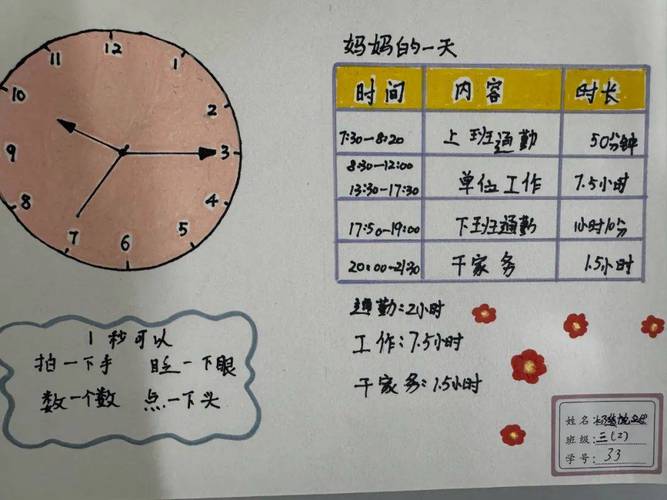 12
1
2
3
4
5
6
7
8
9
10
11
妈妈的一天
时间 内容 时长
7:30—8:20 上班通勤 50分钟
8:30—12:00
13:30—17:30 单位工作 7.5小时
17:50—19:00 下班通勤 1小时10分
20:00—21:30 干家务 1.5小时
通勤:2小时
工作:7.5小时
干家务:1.5小时
1秒可以
拍一下手 眨一下眼
数一个数 点一下头
姓名:
班级:三(2)
学号:33